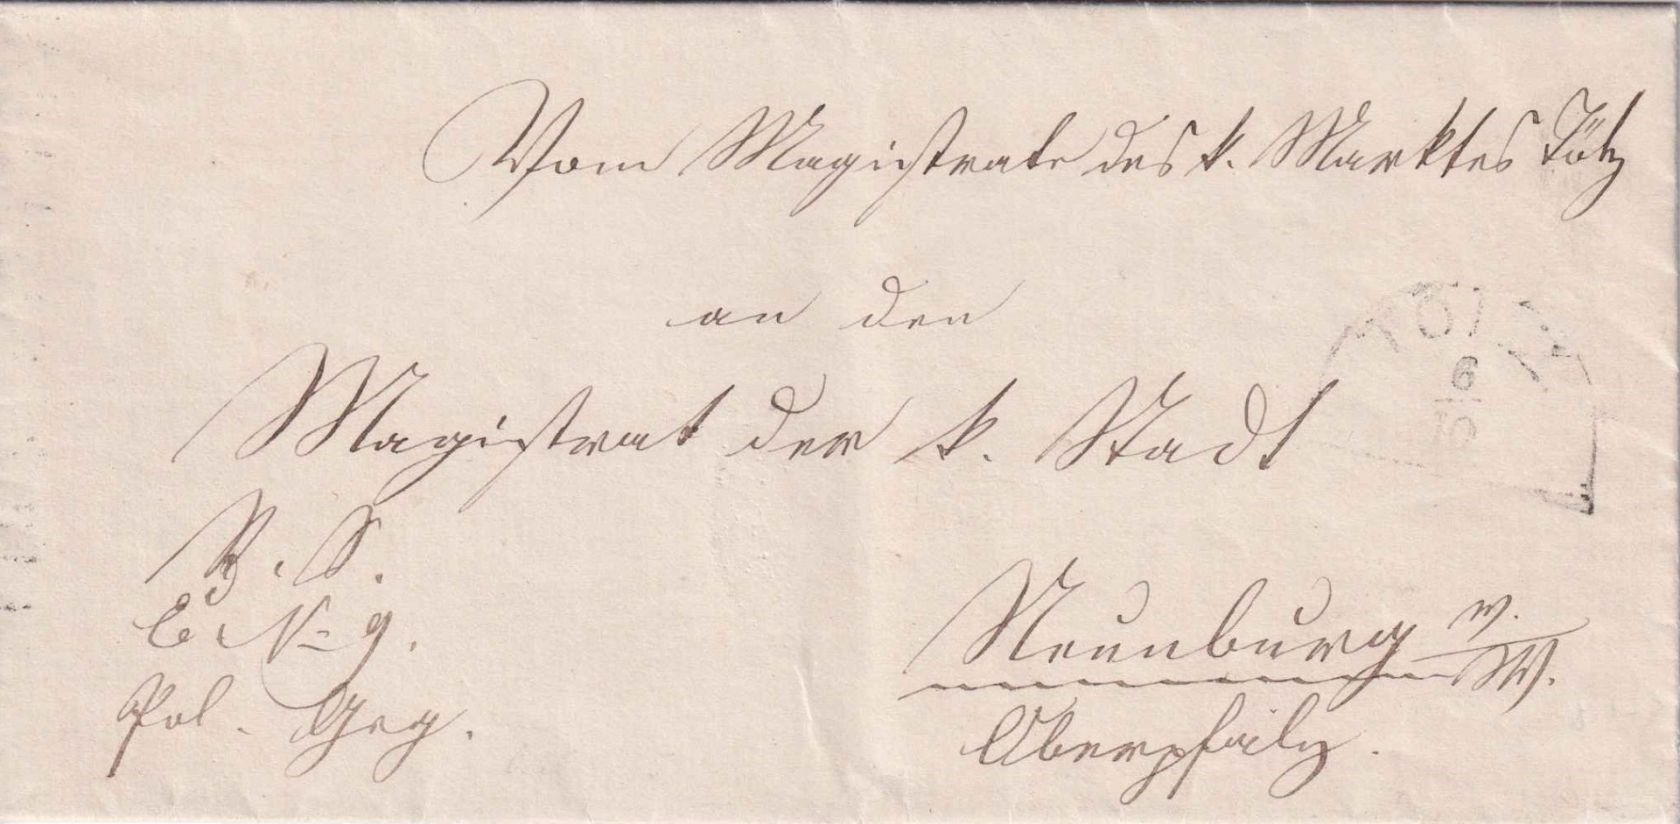 Vom Magistrate des k. Marktes Tölz
an den
TÖLZ
6
Magistrat der k. Stadt
R. S.
E. № 9.
Neunburg v./W.
Pol. Geg.
Oberpfalz.